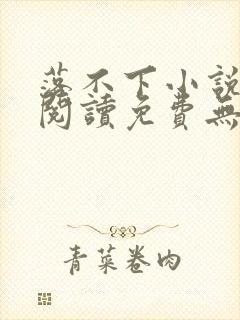 落不下小說
閱讀免費無
青菜卷肉